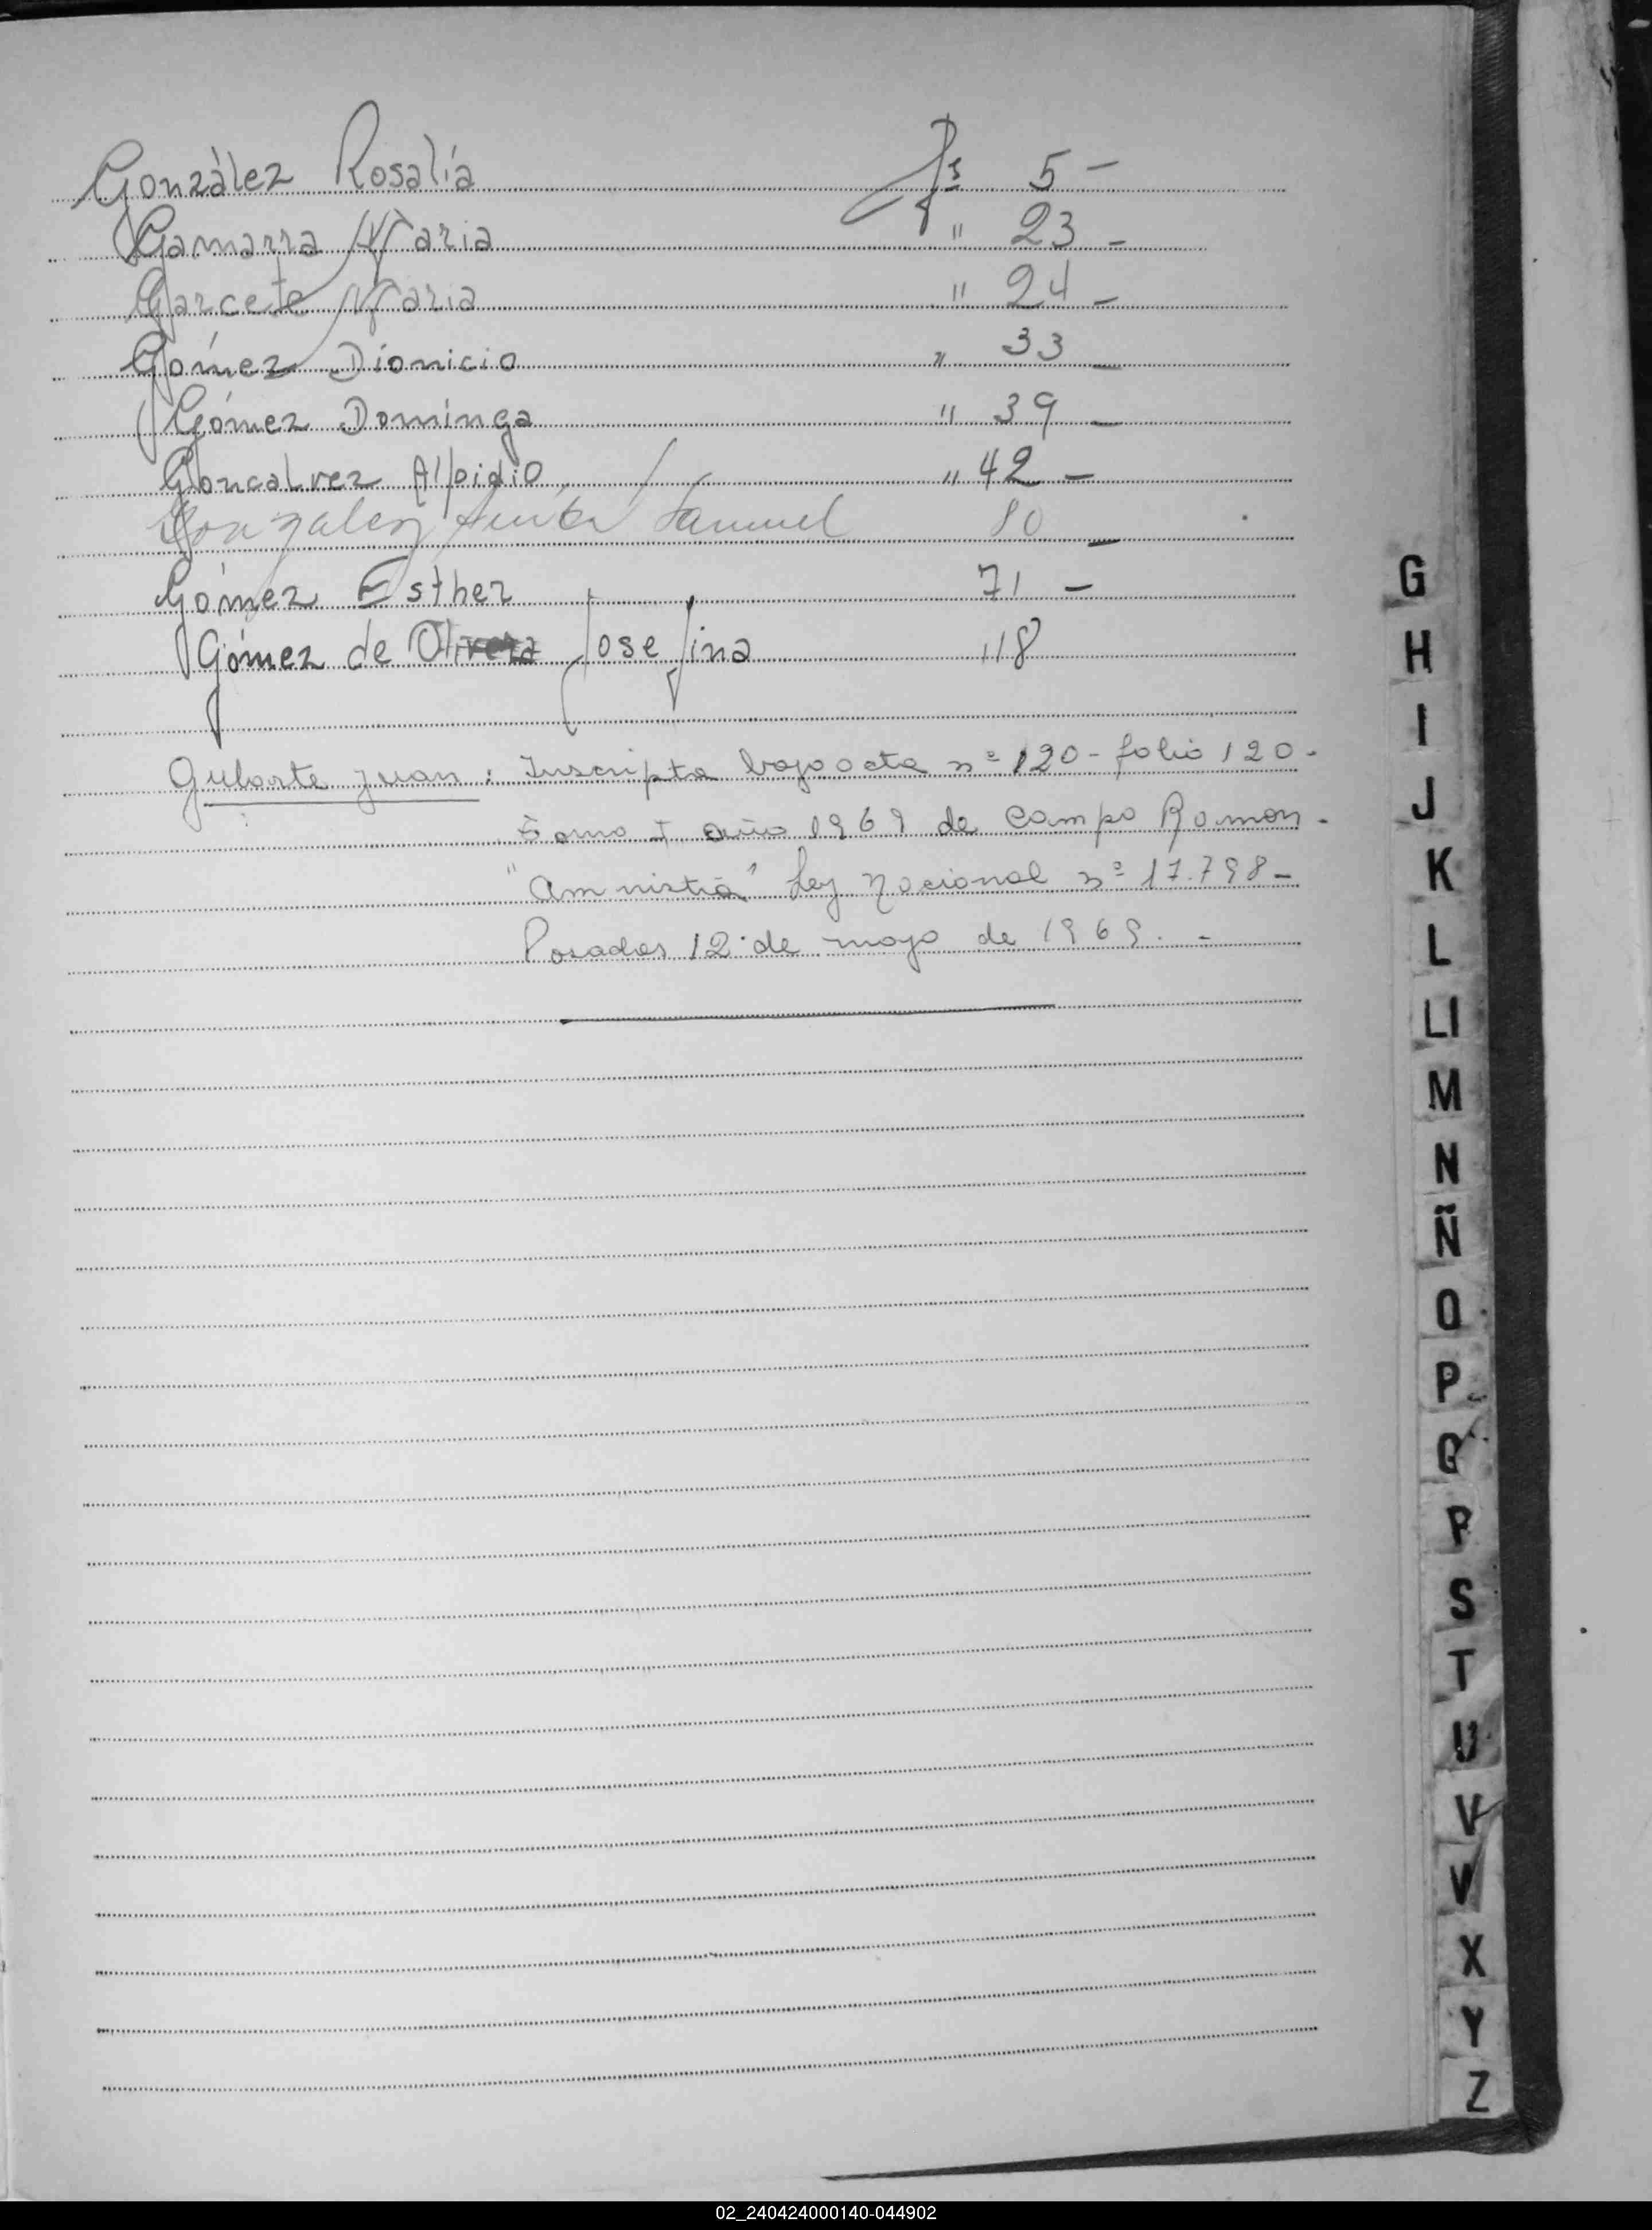 González Rosalía Fs 5 -
Gamarra Maria " 23 -
Garcete Maria " 24 -
Gómez Dionicio " 33 -
Gómez Dominga " 39 -
Goncalvez Alpidio " 42 -
Gonzalez Samuel 80 -
Gómez Esther 71 -
Gómez de Olivera Josefina 118
Gularte Juan: Inscripta bajo acta nº 120 - folio 120 -
Tomo I año 1969 de Campo Ramon -
"Amnistia" Ley Nacional nº 17.798 -
Posadas 12 de mayo de 1969. -
G
H
I
J
K
L
Ll
M
N
Ñ
O
P
Q
R
S
T
U
V
W
X
Y
Z
02_240424000140-044902